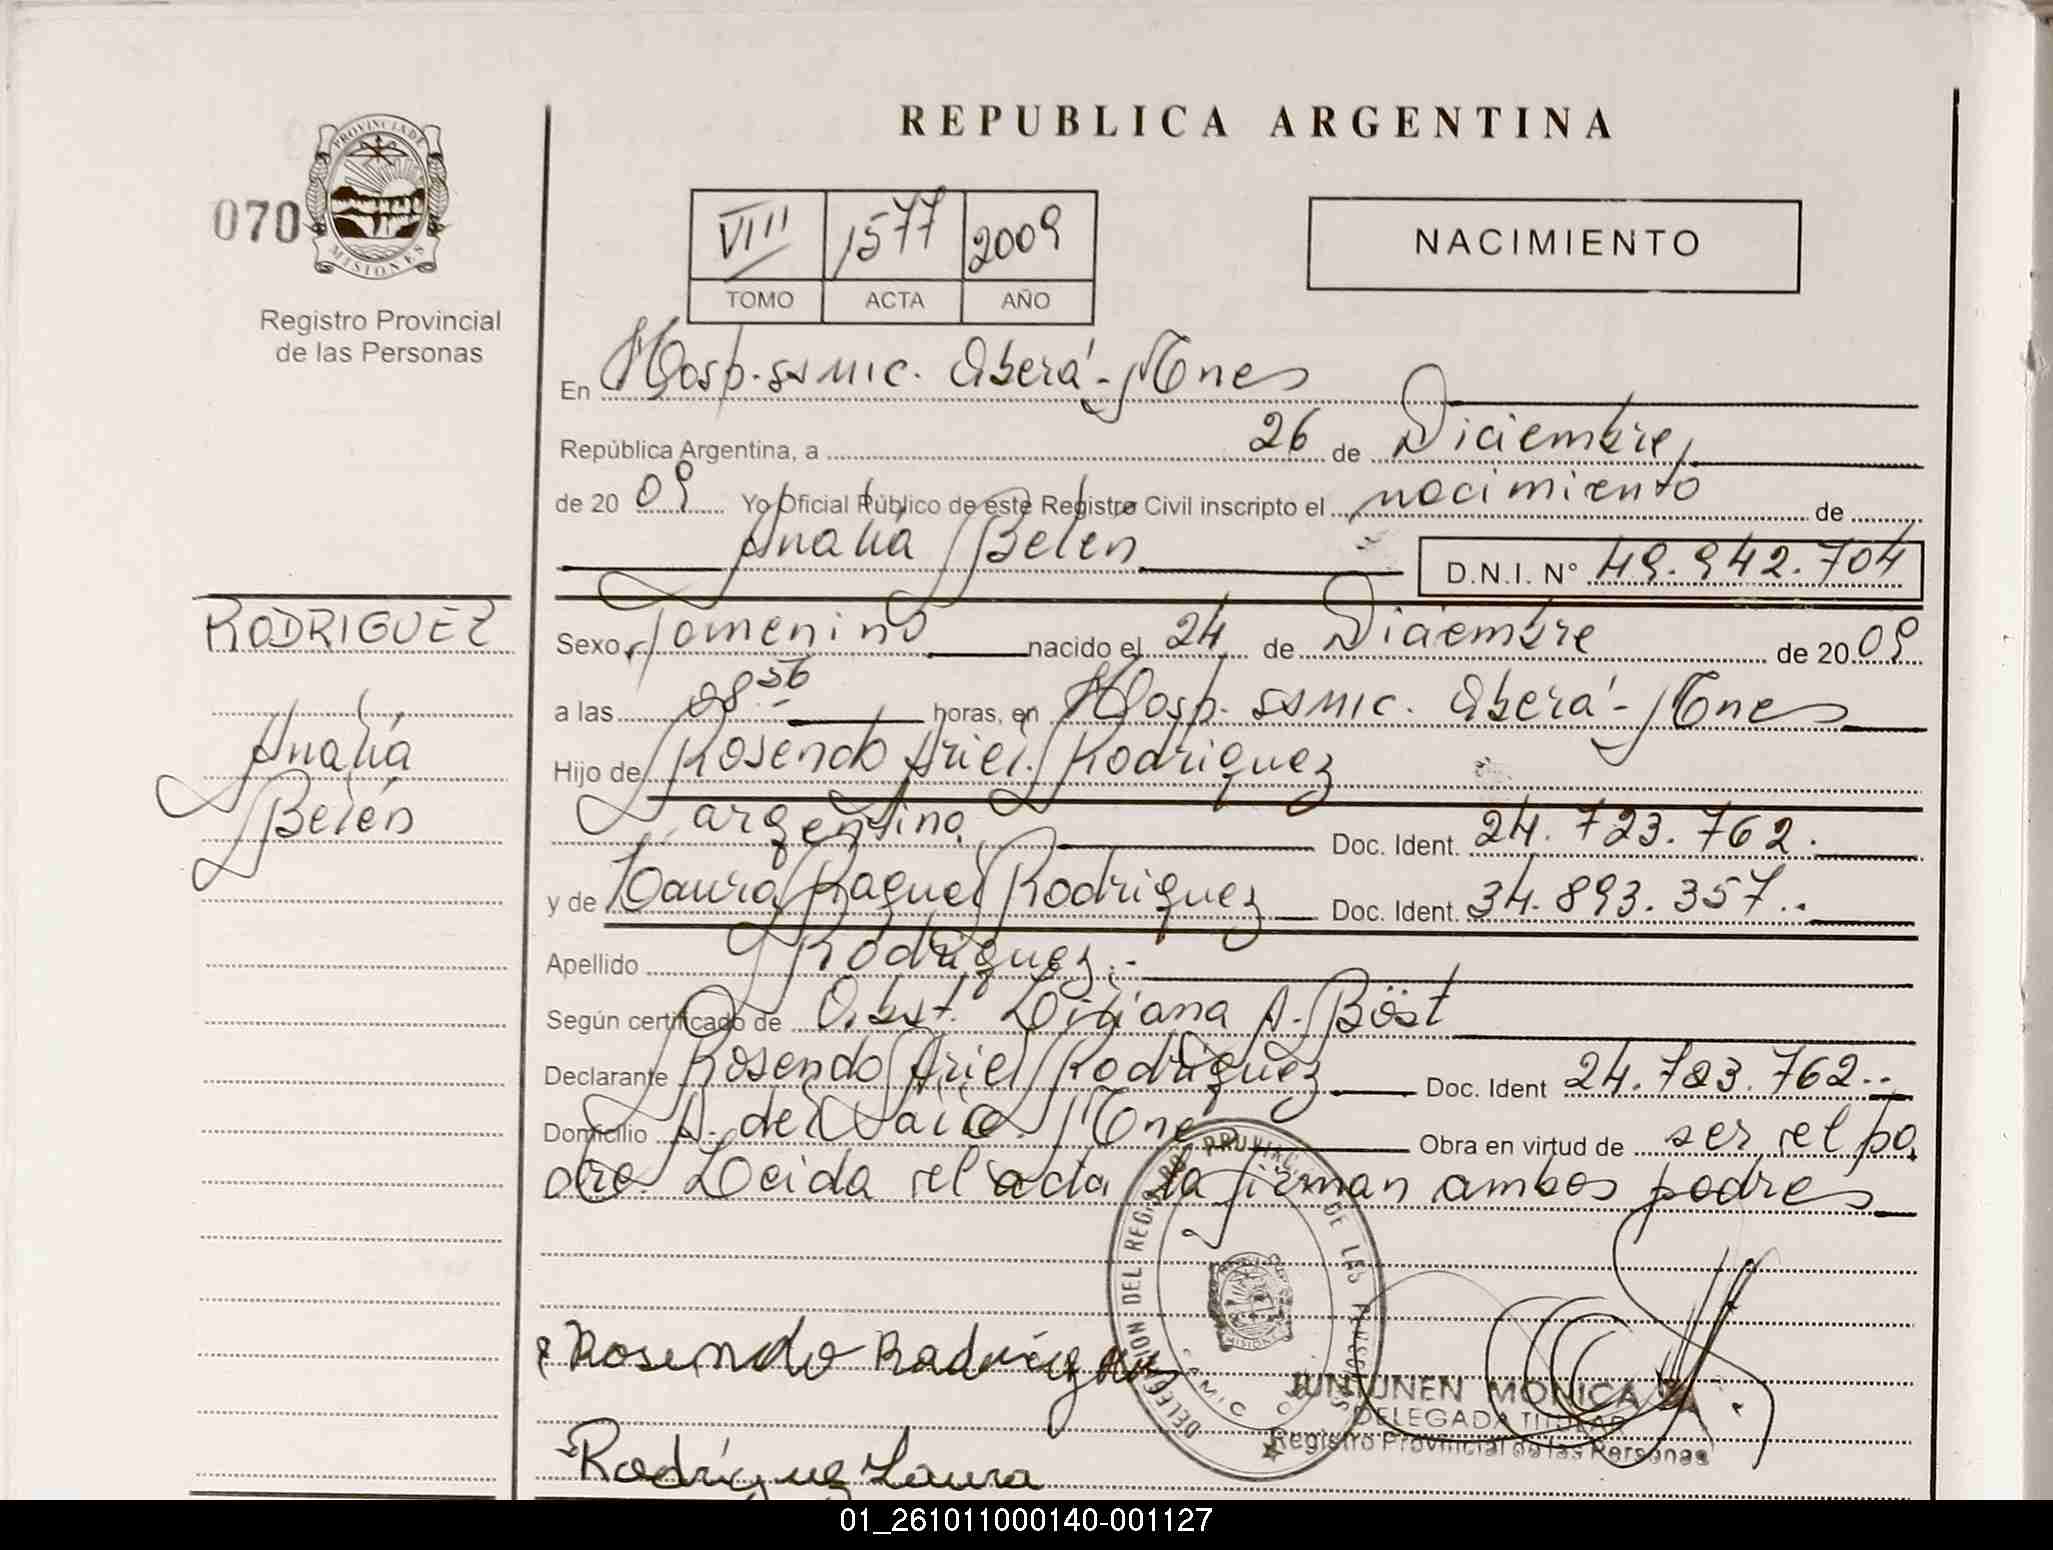 REPUBLICA ARGENTINA
PROVINCIA DE
MISIONES
070
Registro Provincial
de las Personas
VIII 1577 2009
TOMO ACTA AÑO
NACIMIENTO
En Hosp. SAMIC. Oberá - Mnes
República Argentina, a 26 de Diciembre,
de 20 09 Yo Oficial Público de este Registro Civil inscripto el nacimiento de
Analía Belén D.N.I. N° 49.942.704
RODRIGUEZ
Analía
Belén
Sexo femenino nacido el 24 de Diciembre de 20 09
a las 08 56 horas, en Hosp. SAMIC. Oberá - Mnes
Hijo de Rosendo Ariel Rodriguez
argentino Doc. Ident. 24.723.762.
y de Laura Raquel Rodriguez Doc. Ident. 34.893.357..
Apellido Rodriguez.-
Según certificado de Obst. Liliana A. Böst
Declarante Rosendo Ariel Rodriguez Doc. Ident 24.723.762..
Domicilio A. del Valle. Mnes Obra en virtud de ser el pa
dre. Leida el acta la firman ambos padres
Rosendo Rodriguez
Rodríguez Laura
DELEGACION DEL REGISTRO PROVINCIAL DE LAS PERSONAS
JUNTUNEN MONICA
DELEGADA TITULAR
Registro Provincial de las Personas
01_261011000140-001127